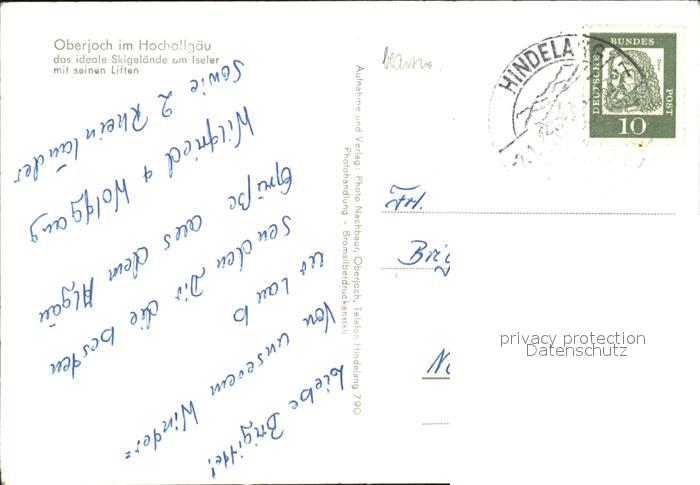 Oberjoch im Hochallgäu
das ideale Skigelände am Iseler
mit seinen Liften
Liebe Brigitte!
Von unserem Winter=
urlaub
senden Dir die besten
Grüße aus dem Algäu
Wilfried + Wolfgang
sowie 2 Rheinländer
Aufnahme und Verlag: Photo Nachbaur, Oberjoch, Telefon Hindelang 790
Photohandlung - Bromsilberdruckanstalt
HINDELANG
DEUTSCHE BUNDESPOST
10
Frl.
Brig
privacy protection
Datenschutz